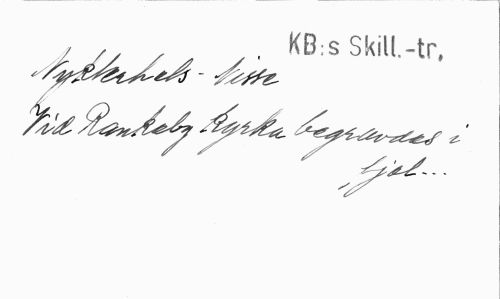 KB:s Skill.-tr.
Nyckelhals-Nisse
Vid Rankaby Kyrka begravdes i
fjol...